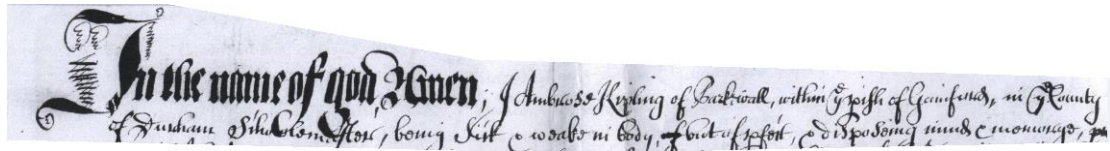 In the name of god Amen; I Ambrose Kipling of Barkwall, within ye pish of Gainford, in ye County
of Durham Schoolemaster, being sick & weake in body, but of pfect, & disposeing minde & memorye,